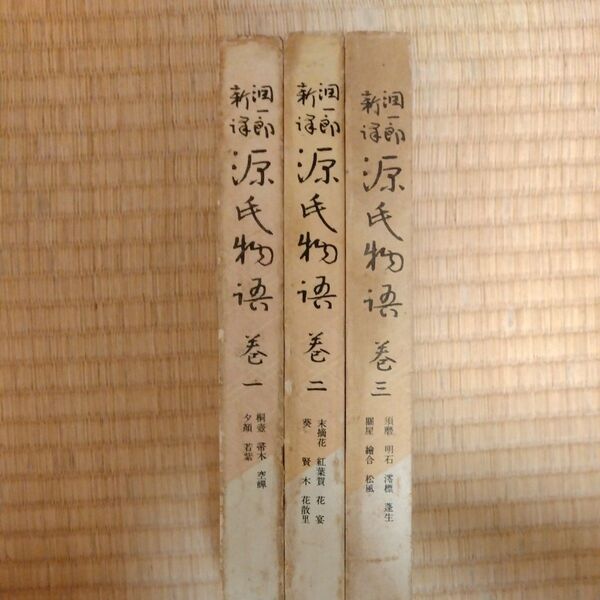 潤一郎
新譯
源氏物语
巻一
桐壺 帚木 空蟬
夕顔 若紫
潤一郎
新譯
源氏物语
巻二
末摘花 紅葉賀 花宴
葵 賢木 花散里
潤一郎
新譯
源氏物语
巻三
須磨 明石 澪標 蓬生
關屋 繪合 松風